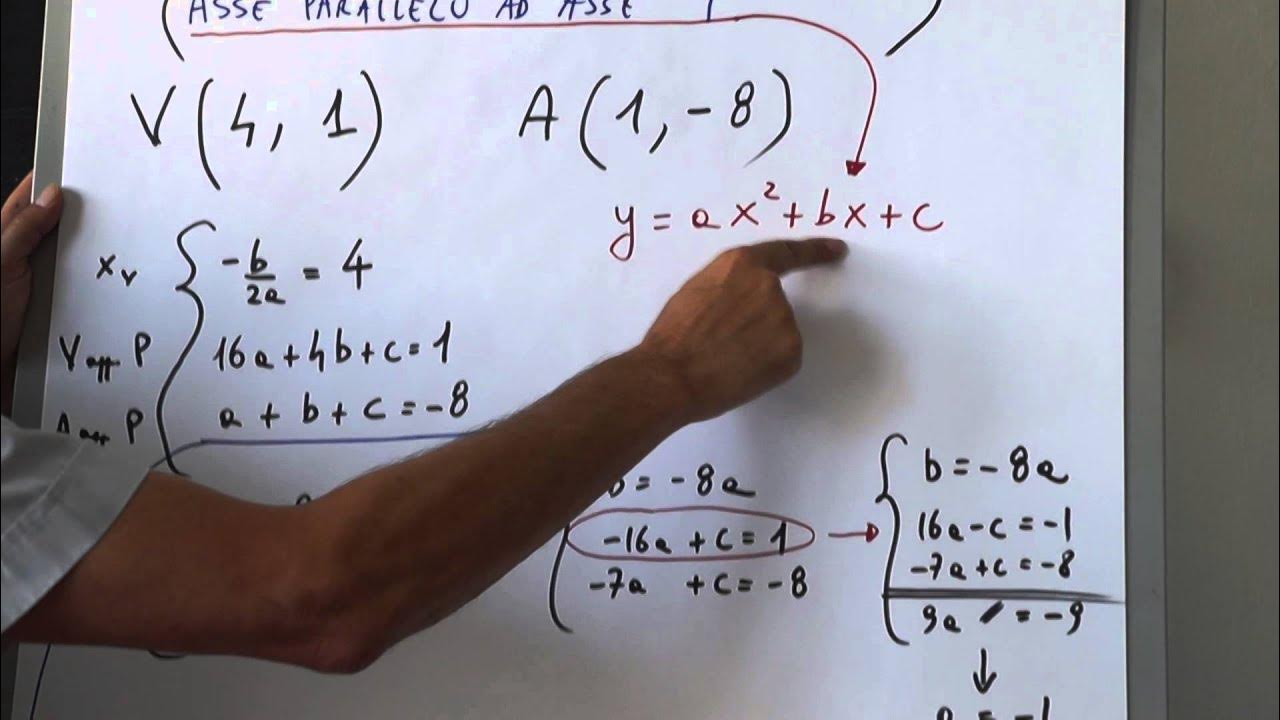 ASSE PARALLELO AD ASSE
V(4, 1) A(1, -8)
y = ax²+bx+c
xv -b/2a = 4
V app P 16a+4b+c=1
A app P a + b + c = -8
b = -8a
-16a + c = 1
-7a + c = -8
b = -8a
16a - c = -1
-7a + c = -8
9a = -9
↓
a = -1